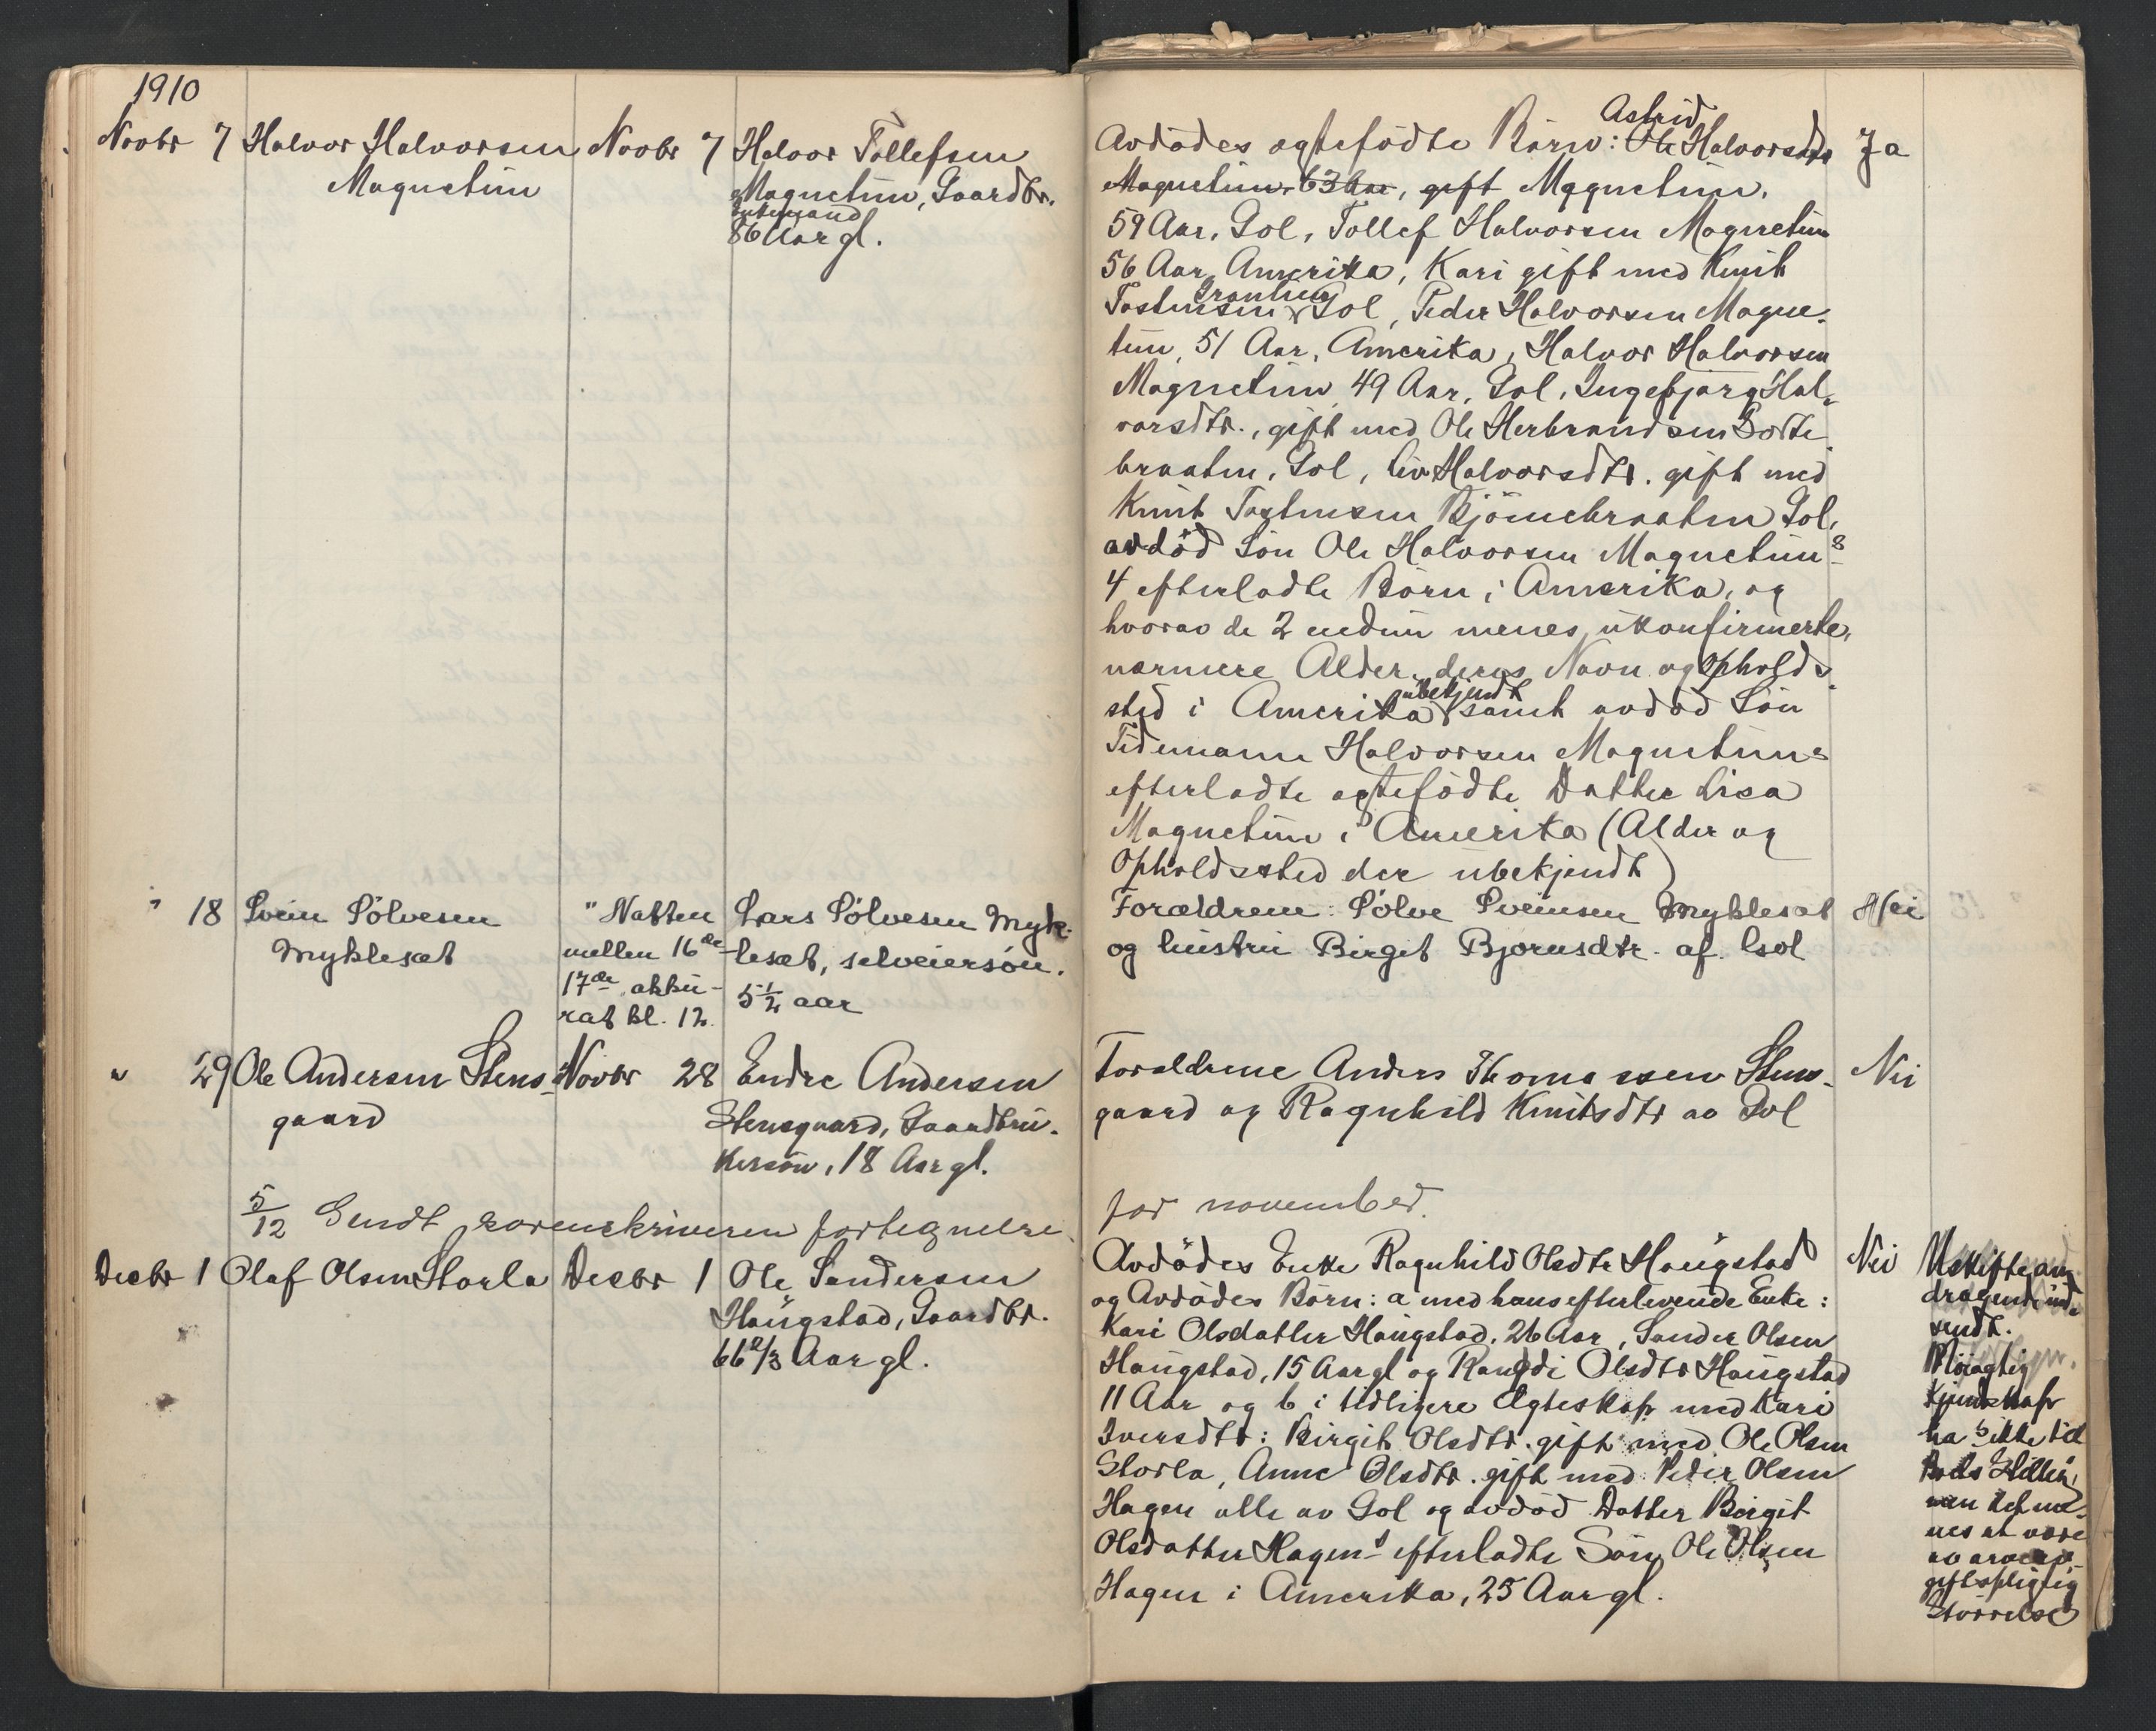 1910
Novbr 7 Halvor Halvorsen Novbr 7 Halvor Tollefsen
Magnetun Magnetun, Gaardbr.
Enkemand
86 Aar gl.
Astrid
Avdødes egtefødte Børn: Ole Halvorsdtr Ja
Magnetun, 63 Aar, gift Magnetun,
59 Aar, Gol, Tollef Halvorsen Magnetun
56 Aar, Amerika, Kari gift med Knut
Grønlien
Tostensen Gol, Peder Halvorsen Magne-
tun, 51 Aar, Amerika, Halvor Halvorsen
Magnetun, 49 Aar, Gol, Ingebjørg Hal-
vorsdtr., gift med Ole Herbrandsen Sorte-
braaten, Gol, Liv Halvorsdtr. gift med
Knut Tostensen Bjørnebraaten Gol,
avdød Søn Ole Halvorsen Magnetuns
4 efterladte Børn i Amerika, og
hvorav de 2 endnu menes ukonfirmerte,
nærmere Alder, deres Navn og Opholds-
ubekjendt
sted i Amerika samt avdød Søn
Tidemann Halvorsen Magnetuns
efterladte egtefødte Datter Lisa
Magnetun i Amerika (Alder og
Opholdssted der ubekjendt)
" 18 Svein Sølvesen " Natten Lars Sølvesen Myk-
Myklesæt mellem 16de- lesæt, selveiersøn.
17de akku- 5½ aar
rat kl. 12.
Forældrene: Sølve Sveinsen Myklesæt Nei
og hustru Birgit Bjørnsdtr. af Gol
" 29 Ole Andersen Stens- Novbr 28 Endre Andersen
gaard Stensgaard, Gaardbru-
kersøn, 18 Aar gl.
Forældrene Anders Thomassen Stens- Nei
gaard og Ragnhild Knutsdtr av Gol
5/12 Sendt sorenskriveren fortegnelse
for november.
Decbr 1 Olaf Olsen Storla Decbr 1 Ole Sandersen
Haugstad, Gaardbr.
66 2/3 Aar gl.
Avdødes Enke Ragnhild Olsdtr Haugstad Nei
og Avdødes Børn: a med hans efterlevende Enke:
Kari Olsdatter Haugstad, 26 Aar, Sander Olsen
Haugstad, 15 Aar gl og Rangdi Olsdtr Haugstad
11 Aar og b i tidligere Egteskap med Kari
Iversdtr: Birgit Olsdtr. gift med Ole Olsen
Storla, Anne Olsdtr. gift med Peder Olsen
Hagen alle av Gol og avdød Datter Birgit
Olsdatter Hagens efterladte Søn Ole Olsen
Hagen i Amerika, 25 Aar gl.
Uskifte an-
dragende ind-
sendt.
Nøiagtig
Kjendskap
haes ikke til
Boets Stilling
men det me-
nes at være
av arveav-
giftspligtig
Størrelse